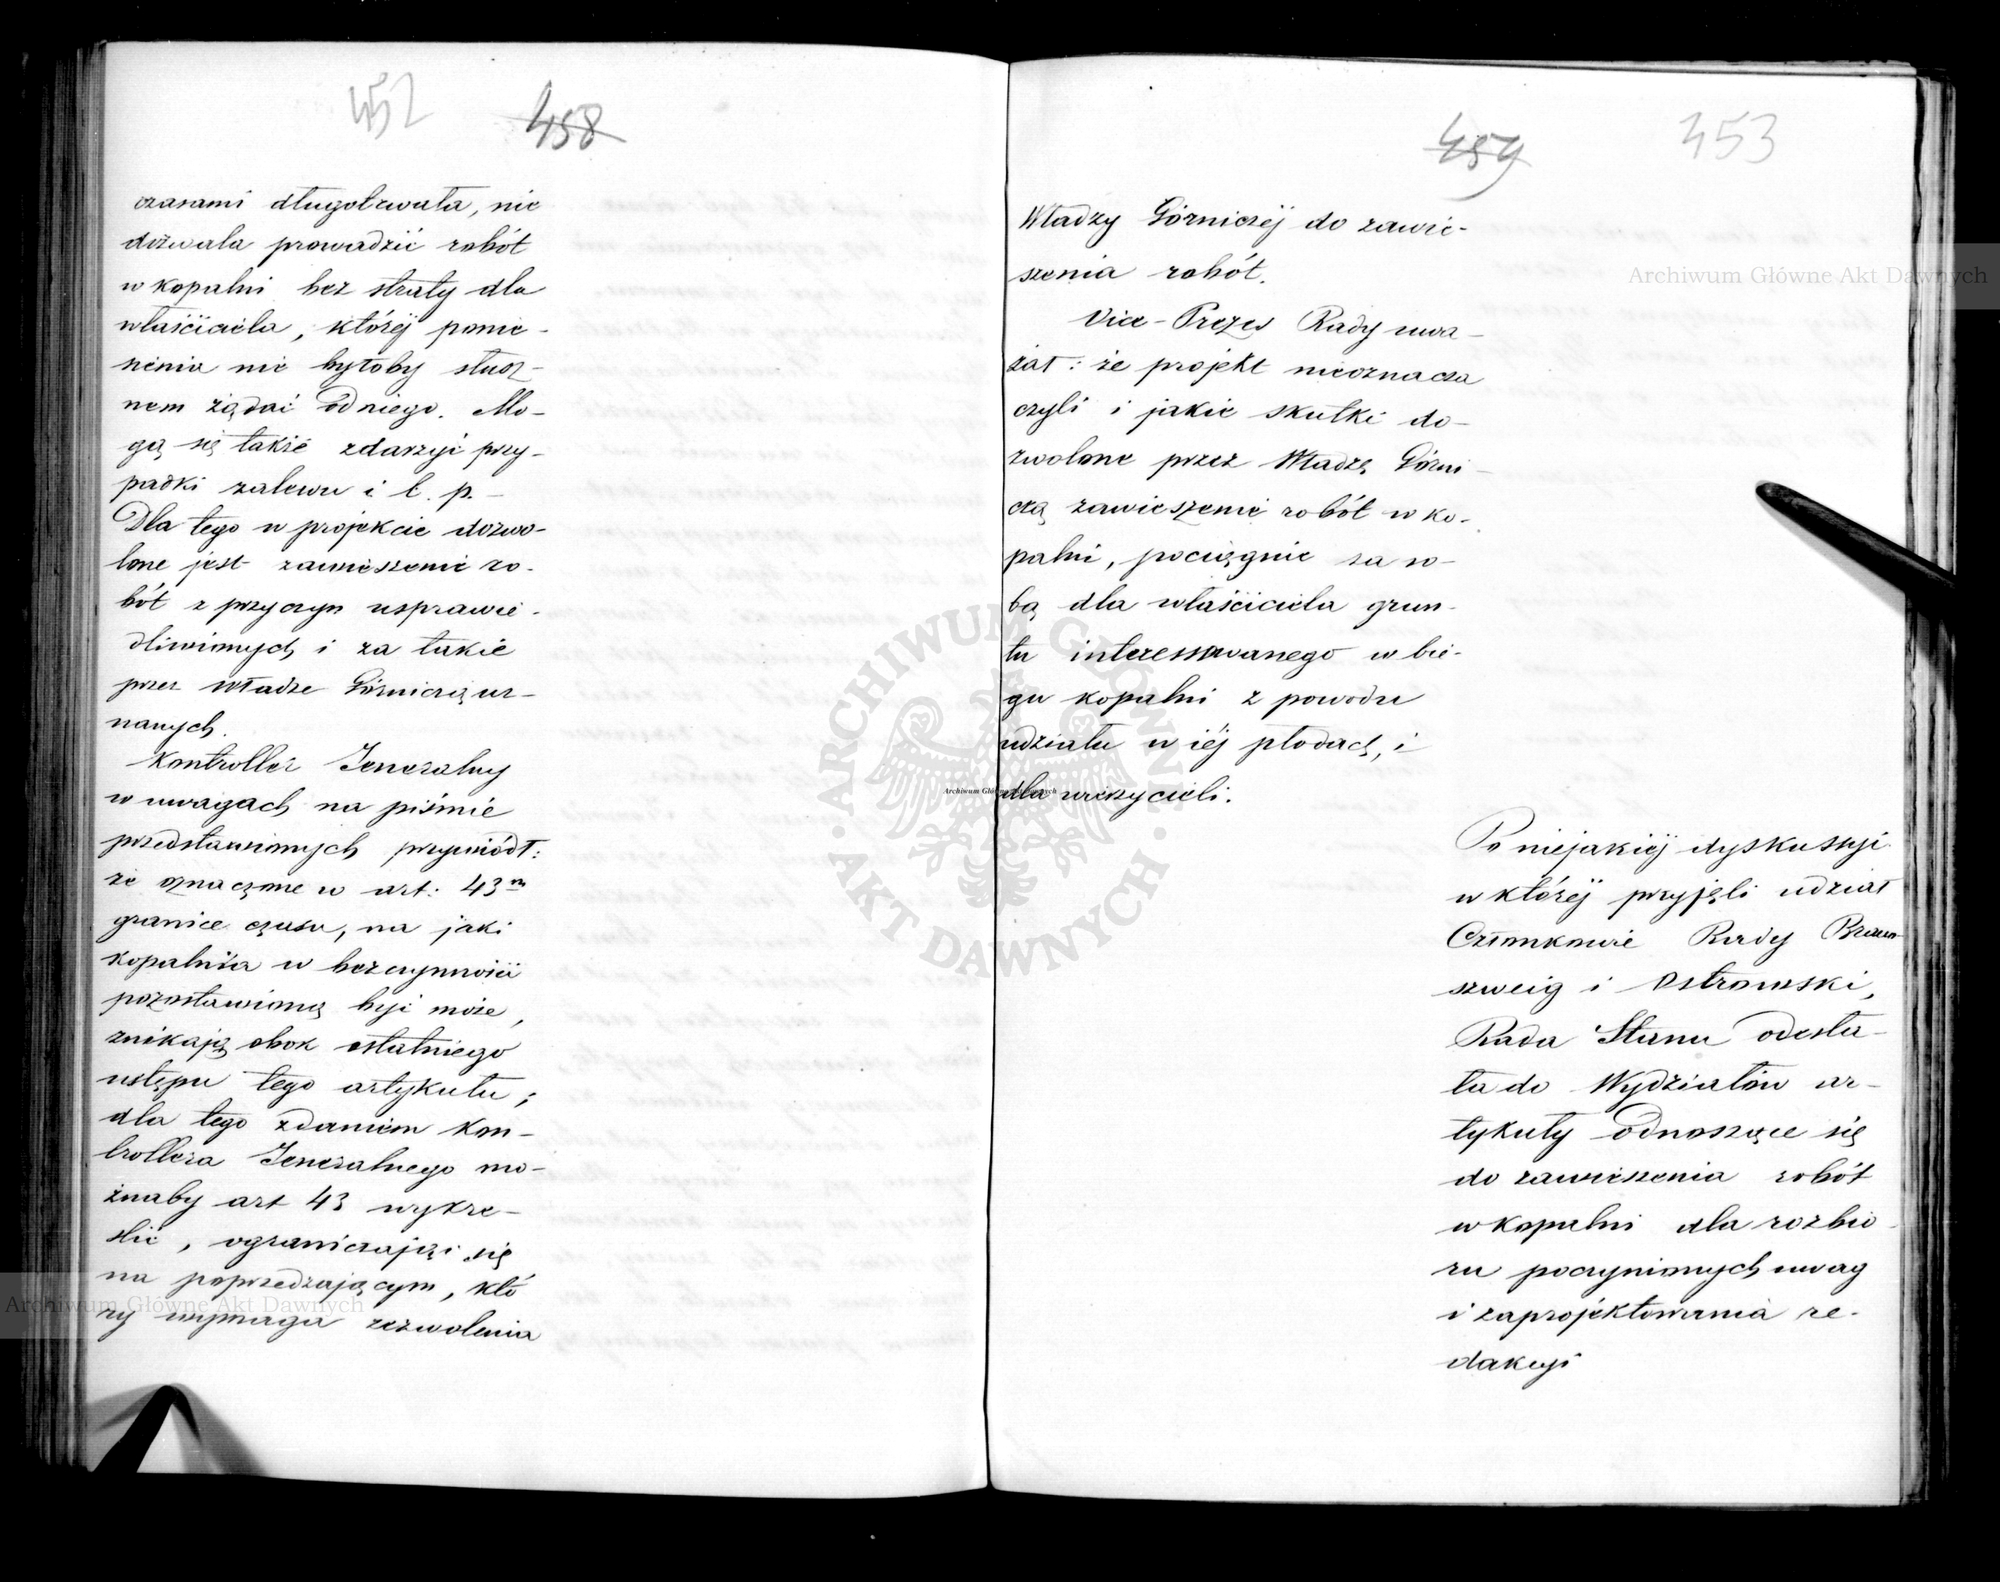 452 458
czasami długotrwała, nie
dozwala prowadzić robót
w kopalni bez straty dla
właściciela, któréj ponie-
sienia nie byłoby słusz-
nem żądać od niego. Mo-
gą się także zdarzyć przy-
padki zalewu i t. p. –
Dla tego w projekcie dozwo-
lone jest zawieszenie ro-
bót z przyczyn usprawie-
dliwionych i za takie
przez Władze Górniczą uz-
nanych.
Kontroller Jeneralny
w uwagach na piśmie
przedstawionych przywiódł:
że oznaczone w art: 43m
granice czasu, na jaki
kopalnia w bezczynności
pozostawioną być może,
znikają obok ostatniego
ustępu tego artykułu;
dla tego zdaniem Kon-
trollera Jeneralnego mo-
żnaby art 43 wykre-
ślić, ograniczając się
na poprzedzającym, któ
ry wymaga zezwolenia
459 453
Władzy Górniczéj do zawie-
szenia robót.
Vice-Prezes Rady uwa-
żał: że projekt nieoznacza
czyli i jakie skutki do-
zwolone przez Władzę Górni-
czą zawieszenie robót w ko-
palni, pociągnie za so-
bą dla właściciela grun-
tu interessowanego w bie-
gu kopalni z powodu
udziału w jéj płodach, i
dla wierzycieli.
Po niejakiéj dyskussyi
w któréj przyjęli udział
Członkowie Rady Braun-
szweig i Ostrowski,
Rada Stanu odesła-
ła do Wydziałów ar-
tykuły odnoszące się
do zawieszenia robót
w kopalni dla rozbio-
ru poczynionych uwag
i zaprojektowania re-
dakcyi
Archiwum Główne Akt Dawnych
Archiwum Główne Akt Dawnych
Archiwum Główne Akt Dawnych
ARCHIWUM GŁÓWNE · AKT DAWNYCH ·